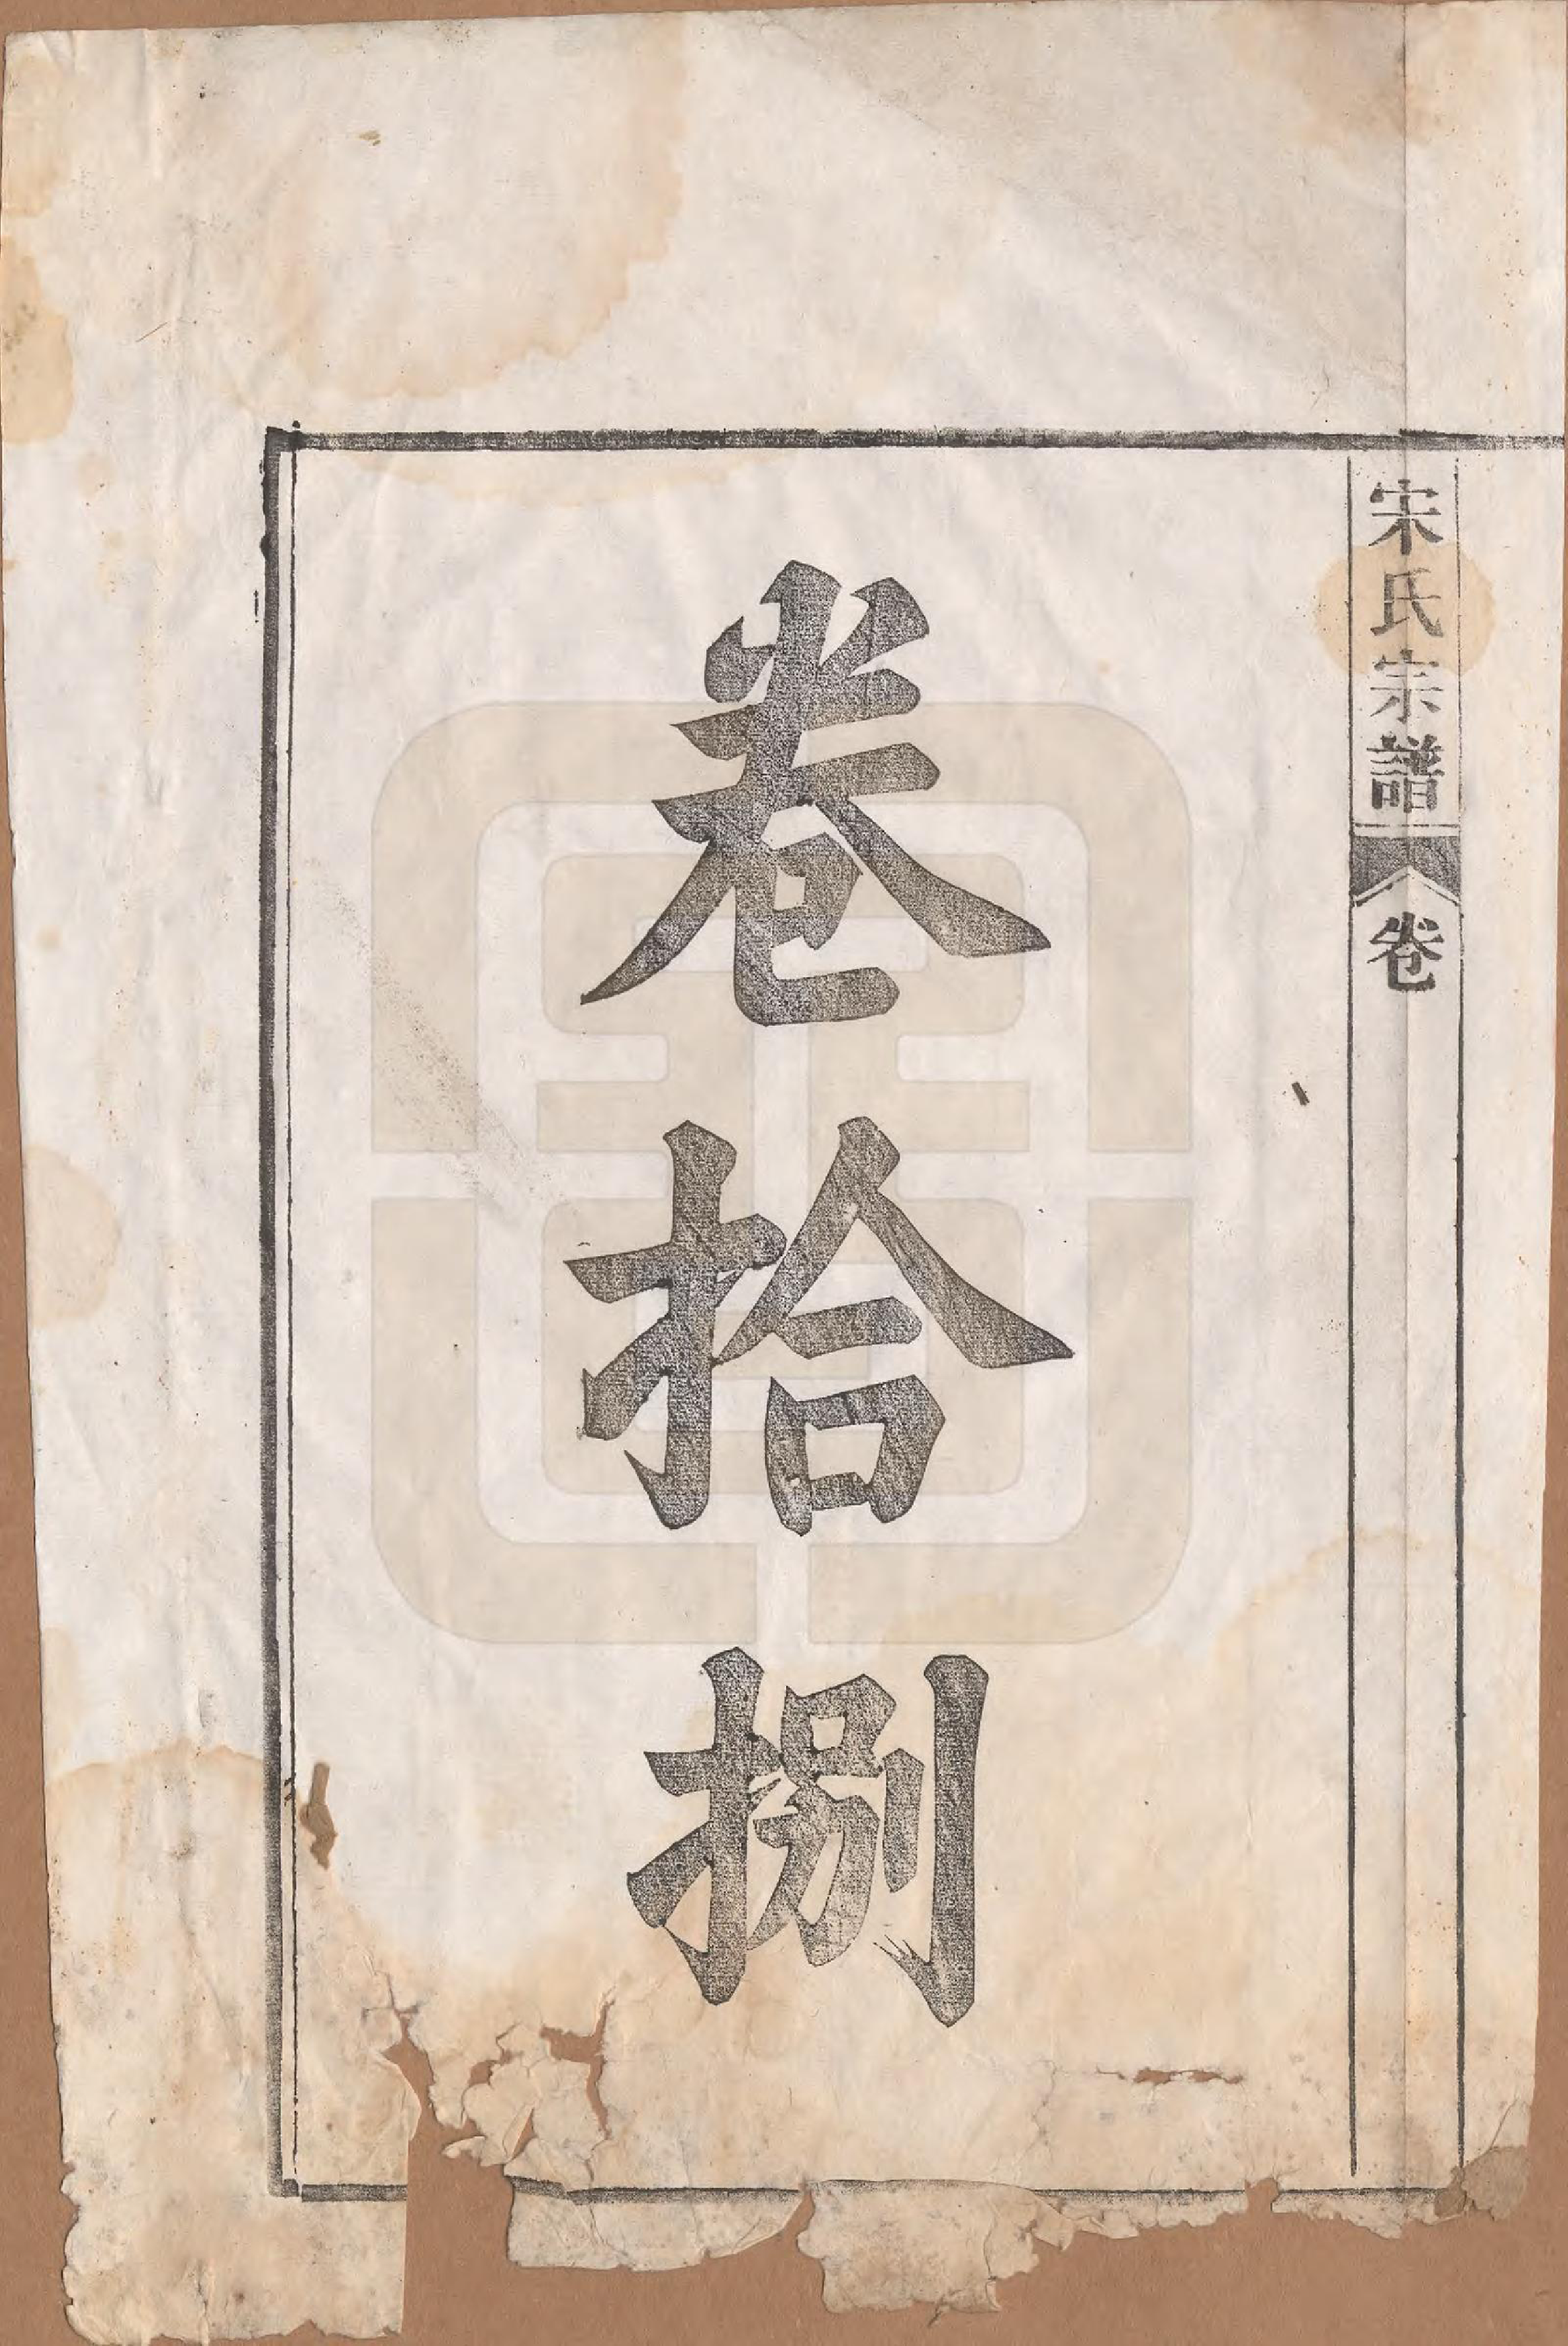 宋氏宗譜
卷
卷拾捌